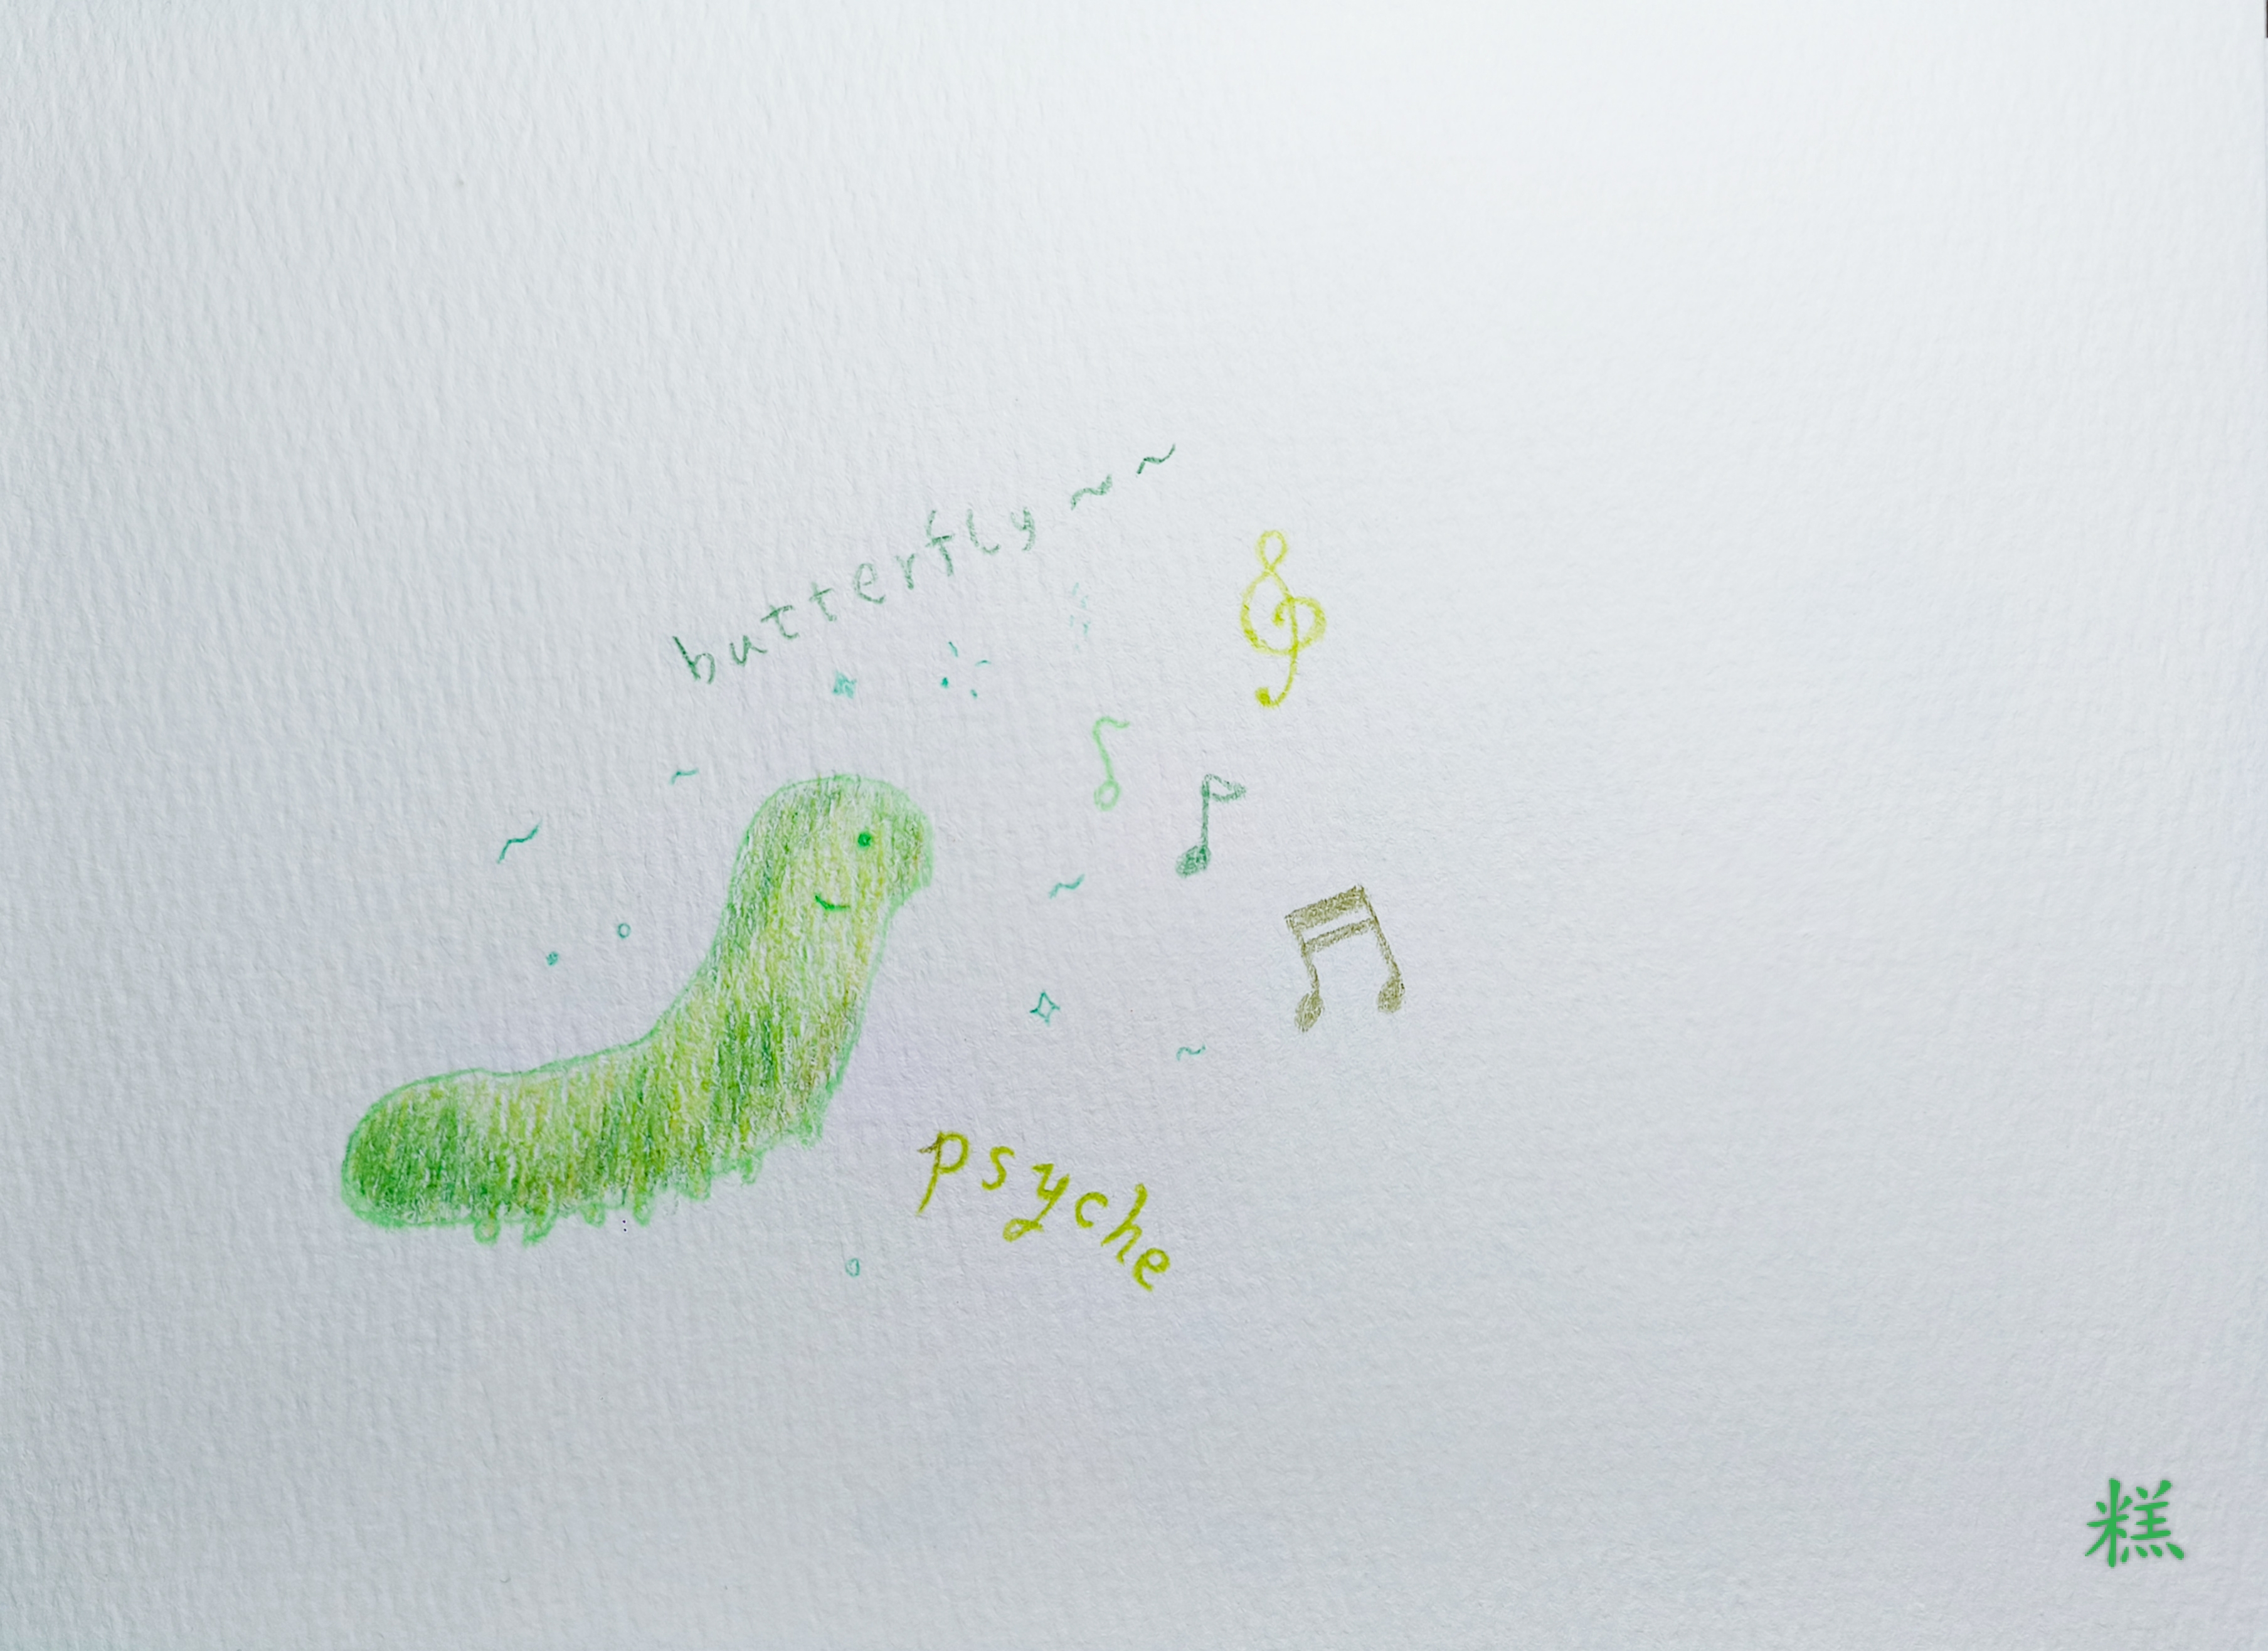 butterfly～～
psyche
糕